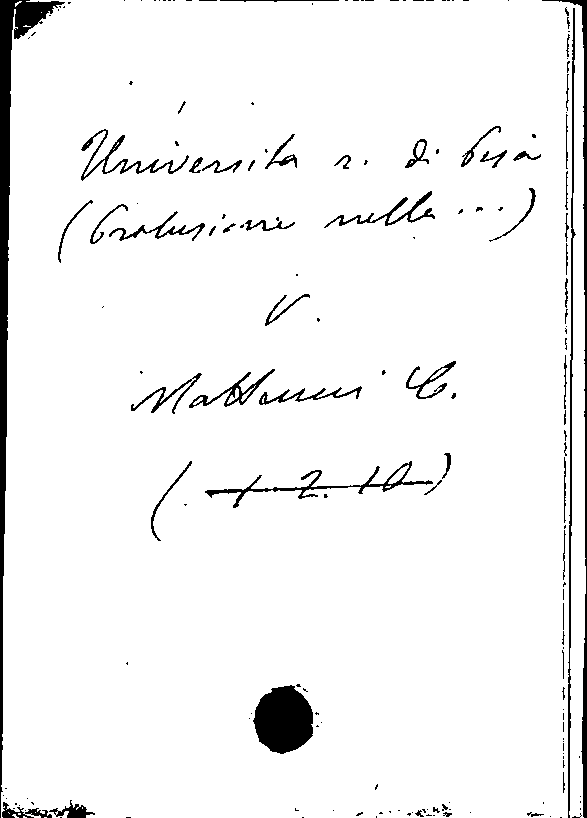 Università r. di Pisa
(Prolusione nella ...)
V.
Matteucci C.
(. 1. 2. 10)